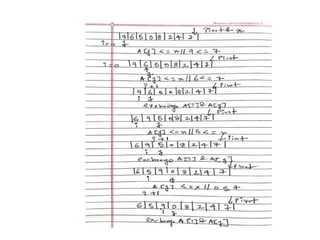 Pivot & x
|9|6|5|0|8|2|4|7|
i=0 j
A[j] <= x // 9 <= 7
Pivot
i=0 |9|6|5|0|8|2|4|7|
j
A[j] <= x // 6 <= 7
i+1 Pivot
|9|6|5|0|8|2|4|7|
i j
exchange A[i] & A[j]
Pivot
|6|9|5|0|8|2|4|7|
i j
A[j] <= x // 5 <= x
i+1 Pivot
|6|9|5|0|8|2|4|7|
i j
exchange A[i] & A[j]
Pivot
|6|5|9|0|8|2|4|7|
i j
A[j] <= x // 0 ≤ 7
i+1 Pivot
6|5|9|0|8|2|4|7|
i j
exchange A[i] & A[j]